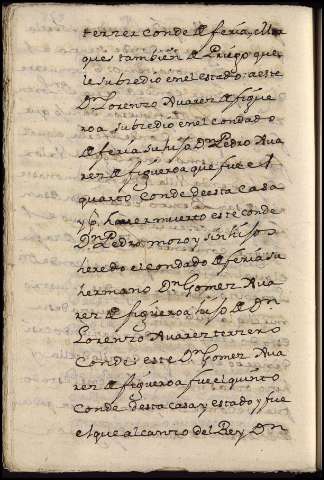 terzer conde de feria, y Mar
ques tambien de Priego que
le subzedio en el estado: a este
Dn Lorenzo Suarez de figue
roa subzedio en el condado
de feria su hijo Dn Pedro Sua
rez de figueroa que fue el
quarto conde de esta casa
y p.r haver muerto este conde
Dn Pedro mozo y sin hijos
heredo el condado de feria su
hermano Dn Gomez Sua
rez de figueroa hijo de Dn
Lorenzo Suarez terzero
Conde: este Dn Gomez Sua
rez de figueroa fue el quinto
Conde desta casa y estado y fue
el que alcanzo del Rey Dn